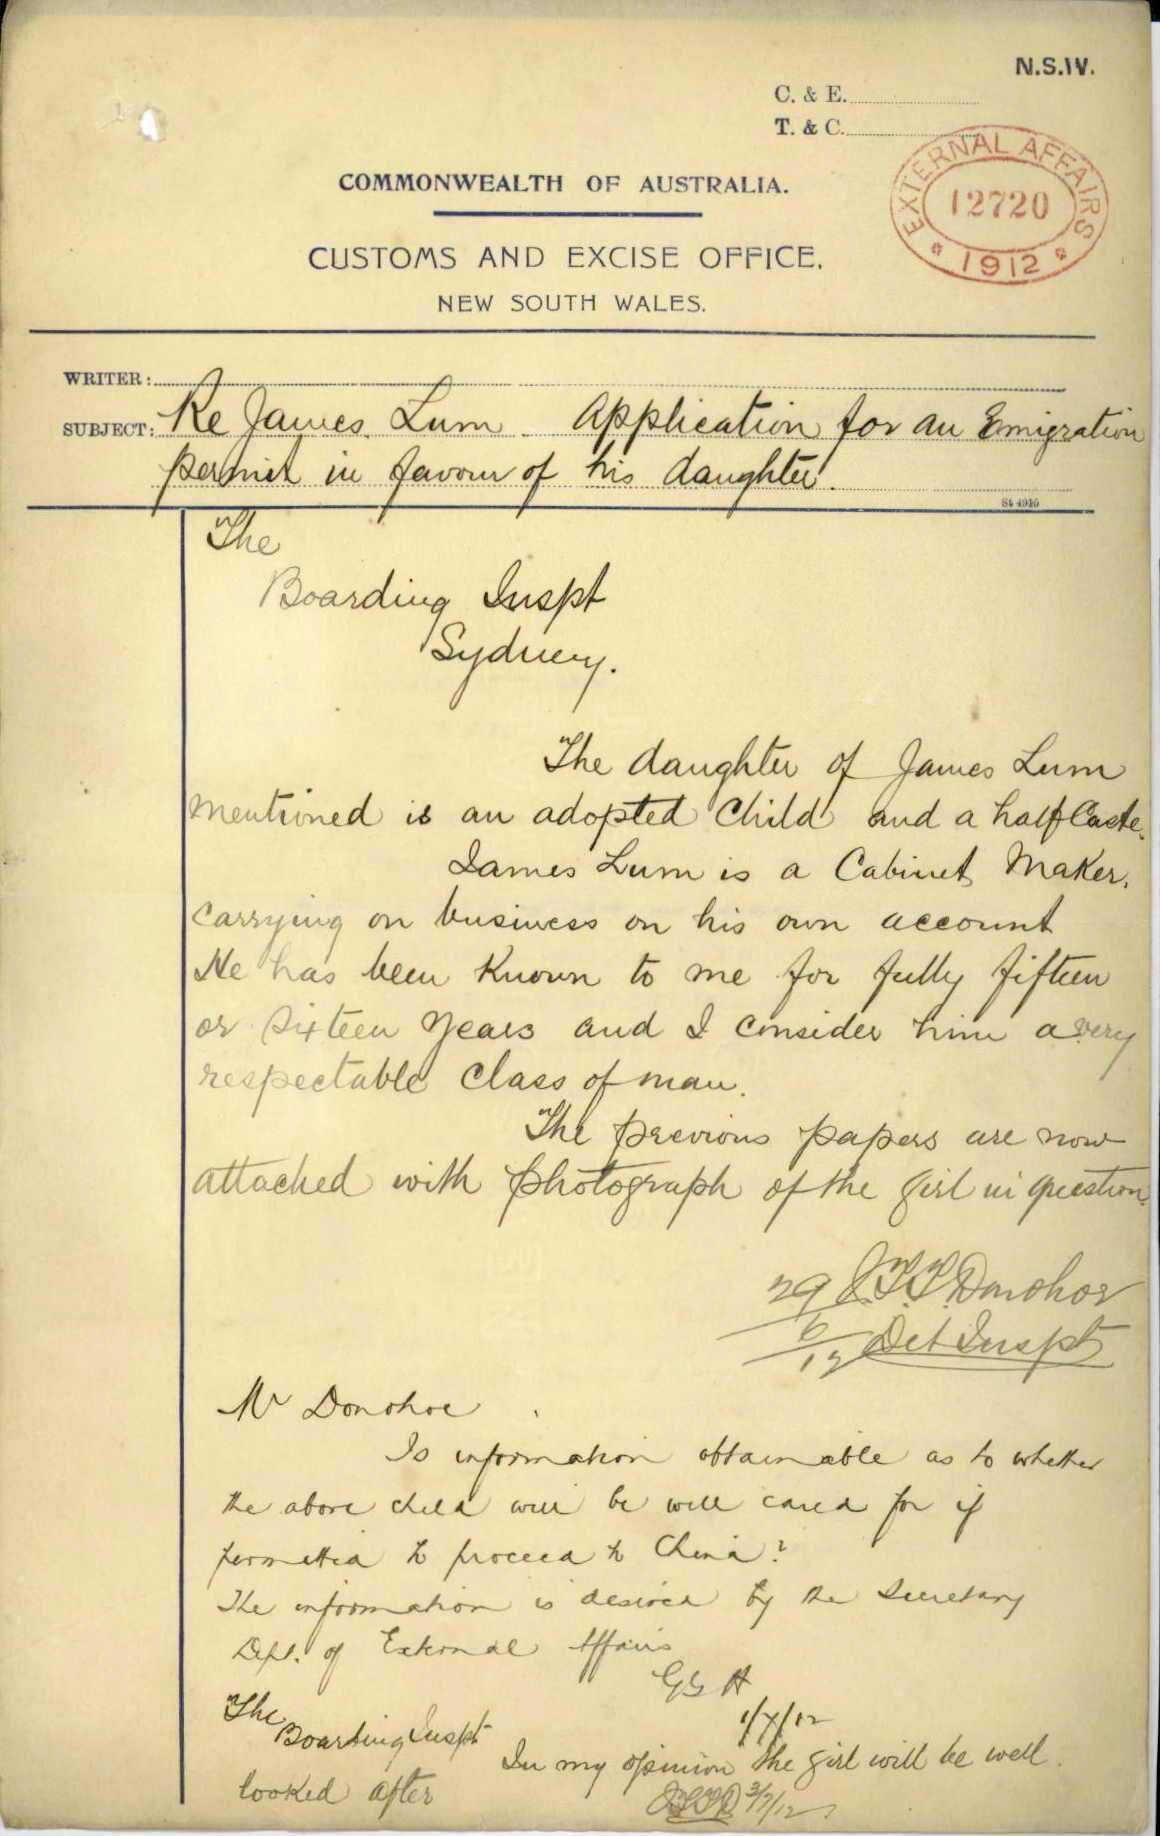 N.S.W.
C. & E.
T. & C.
EXTERNAL AFFAIRS
12720
1912
COMMONWEALTH OF AUSTRALIA.
CUSTOMS AND EXCISE OFFICE,
NEW SOUTH WALES.
WRITER:
SUBJECT: Re James Lum. Application for an Emigration
permit in favour of his daughter.
St 4910
The
Boarding Inspt
Sydney.
The daughter of James Lum
mentioned is an adopted Child and a half Caste.
James Lum is a Cabinet Maker,
carrying on business on his own account
He has been Known to me for fully fifteen
or sixteen years and I consider him a very
respectable class of man.
The previous papers are now
attached with photograph of the girl in question.
29/6/12 J.T.T. Donohoe
Det Inspt
Mr Donohoe
Is information obtainable as to whether
the above child will be well cared for if
permitted to proceed to China?
The information is desired by the Secretary
Dept. of External Affairs
1/7/12
The
Boarding Inspt
In my opinion the girl will be well
looked after
3/7/12